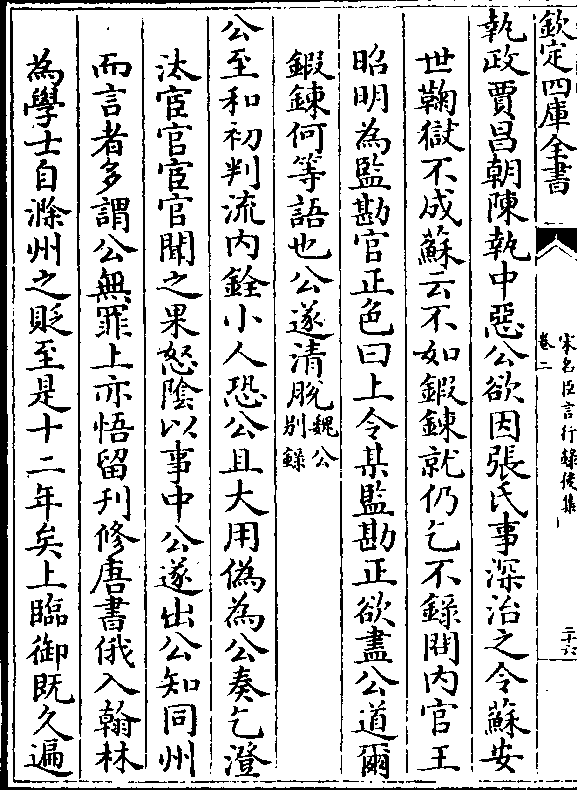 欽定四庫全書
宋名臣言行録後集
卷二
二十六
執政賈昌朝陳執中惡公欲因張氏事深治之令蘇安
世鞫獄不成蘇云不如鍜鍊就仍乞不録問内官王
昭明為監勘官正色曰上令某監勘正欲盡公道爾
鍜鍊何等語也公遂清脱魏公别録
公至和初判流内銓小人恐公且大用偽為公奏乞澄
汰宦官宦官聞之果怒隂以事中公遂出公知同州
而言者多謂公無罪上亦悟留刋修唐書俄入翰林
為學士自滁州之貶至是十二年矣上臨御既久遍